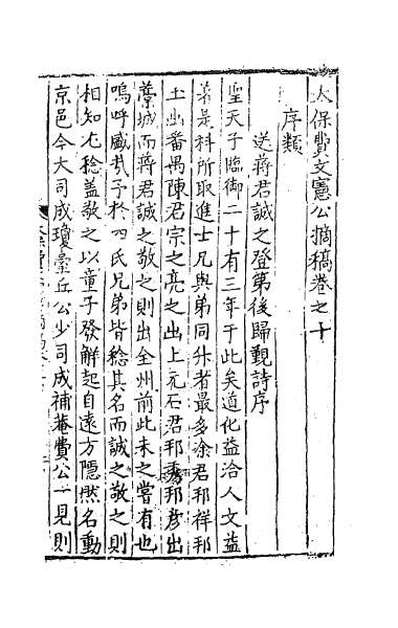 太保費文憲公摘稿卷之十
序類
送蔣君誠之登第後歸覲詩序
聖天子臨御二十有三年于此矣道化益洽人文益
是科所取進士兄與弟同升者最多余君邦祥邦
土出番禺陳君宗之亮之出上元石君邦秀邦彥出
藁城而蔣君誠之敬之則出全州前此未之嘗有也
嗚呼盛哉予於四氏兄弟皆稔其名而誠之敬之則
相知尤稔蓋敬之以童子發解起自遠方隱然名動
京邑今大司成瓊臺丘公少司成補菴費公一見則